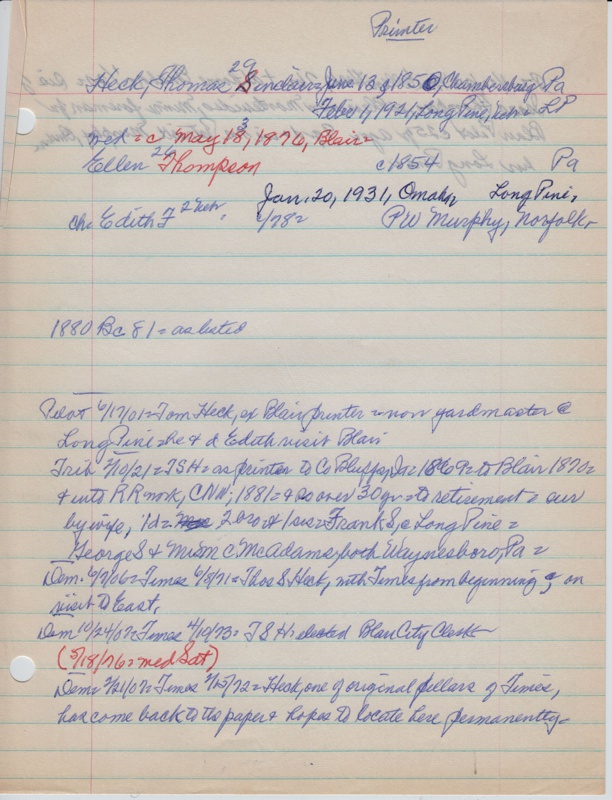 Printer
Heck, Thomas 29 Sindair= June 13, 1850, Chambersburg Pa
Feb 1, 1921, Long Pine, = LP
med = c May 18, 3 1876, Blair=
Ellen 26 Thompson c1854 Pa
Jan. 20, 1931, Omaha Long Pine,
ch. Edith F 2 Neb. 1/78= PW Murphy, Norfolk
1880 Bc 81 = as listed
Pilot 6/17/01= Tom Heck, ex Blair printer = now yardmaster @
Long Pine = he & d Edith visit Blair
Trib 2/10/21= TSH= as printer to Co Bluffs, Ia= 1869= to Blair 1870=
& into RR work, CNW, 1881= & so over 30 yr= to retirement = sur
by wife, 1d= 2 bro & 1 sis= Frank S, @ Long Pine =
George S & Mrs M C McAdams, both Waynesboro, Pa =
Dem. 6/7/06= Times 6/8/71= Thos S. Heck, with Times from beginning, on
visit to East.
Dem 10/24/07= Times 4/10/73= T S H= elected Blair City Clerk
(5/18/76= med Sat)
Dem= 2/21/07= Times 2/15/72= Heck, one of original pillars of Times,
has come back to the paper & hopes to locate here permanently=